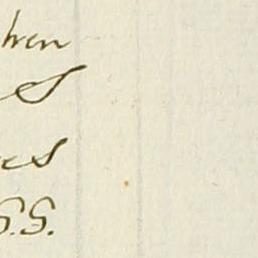 hren
s
es
S.S.